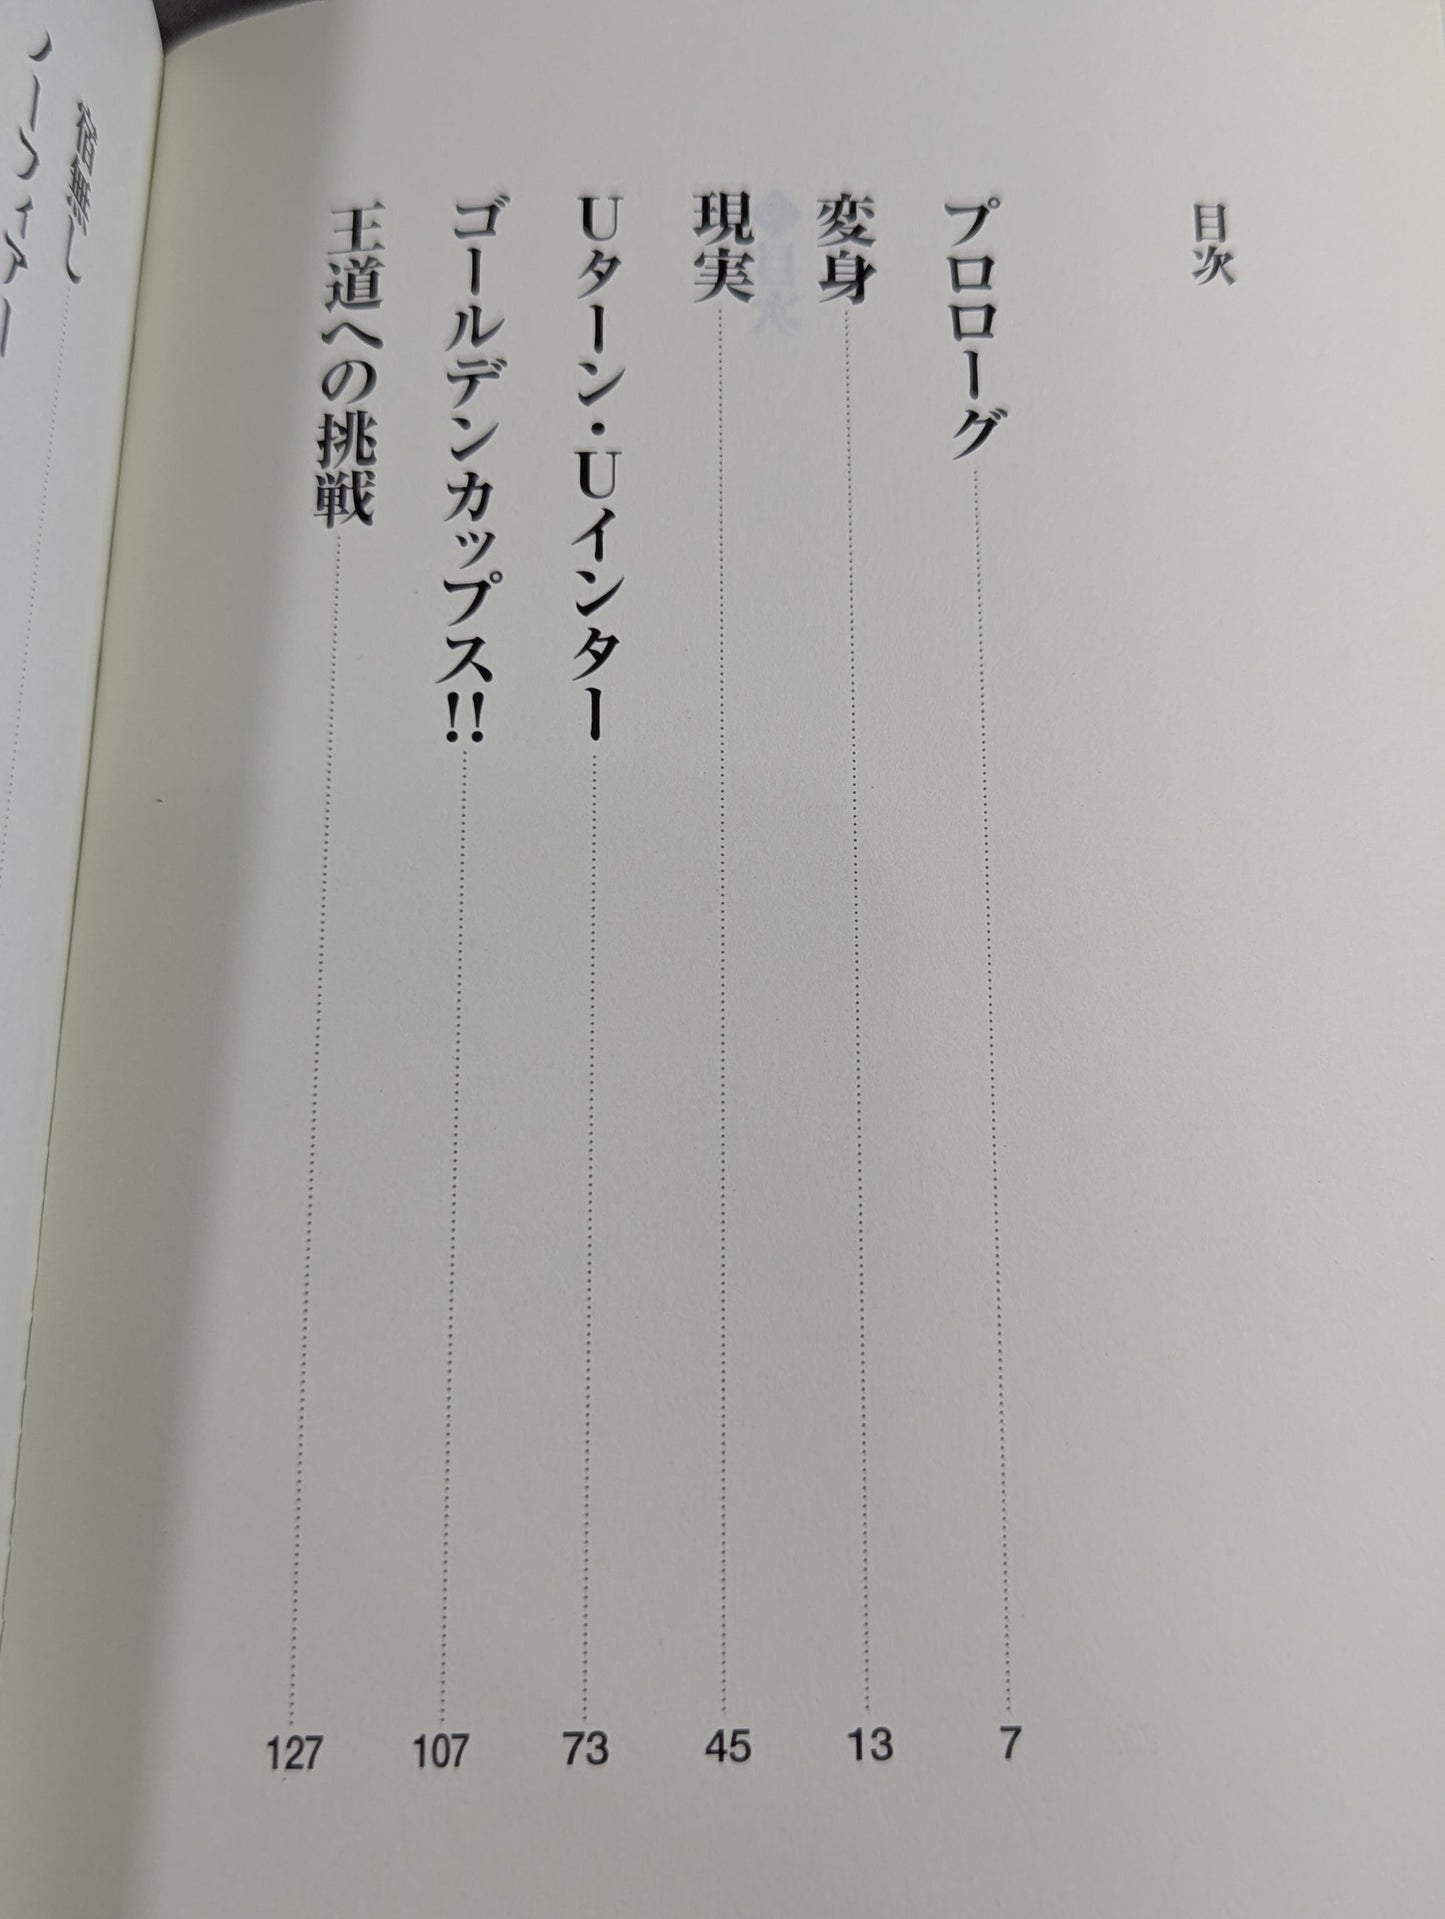 目次
プロローグ 7
変身 13
現実 45
Uターン・Uインター 73
ゴールデンカップス!! 107
王道への挑戦 127
宿無し